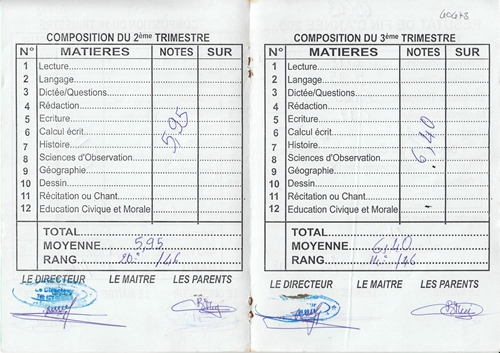 COMPOSITION DU 2ème TRIMESTRE
N° MATIERES NOTES SUR
1 Lecture
2 Langage
3 Dictée/Questions
4 Rédaction
5 Ecriture
6 Calcul écrit
7 Histoire
8 Sciences d'Observation
9 Géographie
10 Dessin
11 Récitation ou Chant
12 Education Civique et Morale
5,95
TOTAL
MOYENNE 5,95
RANG 20e /46
LE DIRECTEUR LE MAITRE LES PARENTS
Le Directeur
404+3
COMPOSITION DU 3ème TRIMESTRE
N° MATIERES NOTES SUR
1 Lecture
2 Langage
3 Dictée/Questions
4 Rédaction
5 Ecriture
6 Calcul écrit
7 Histoire
8 Sciences d'Observation
9 Géographie
10 Dessin
11 Récitation ou Chant
12 Education Civique et Morale
6,40
TOTAL
MOYENNE 6,40
RANG 14e /46
LE DIRECTEUR LE MAITRE LES PARENTS